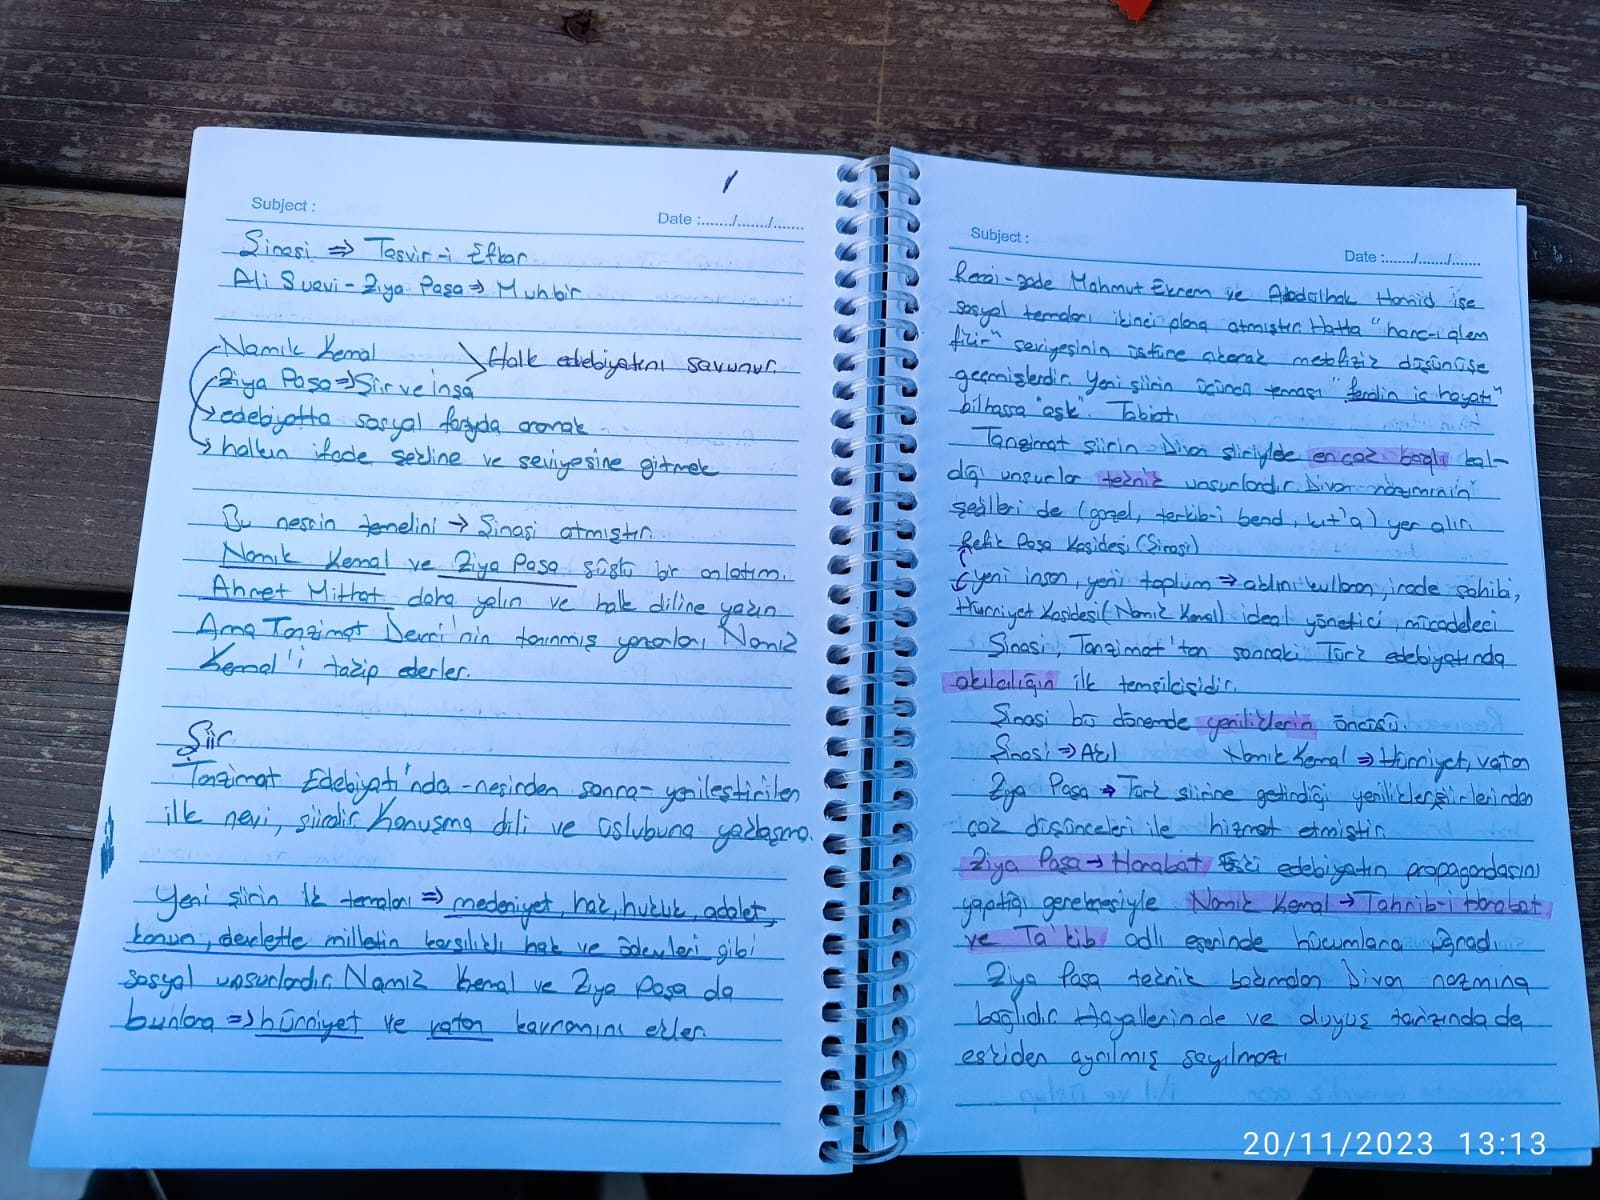 Subject :
Date :......./......./.......
Şinasi ⇒ Tasvir-i Efkar
Ali Suavi-Ziya Paşa ⇒ Muhbir
Namık Kemal
Halk edebiyatını savunur.
Ziya Paşa ⇒ Şiir ve İnşa
edebiyatta sosyal fayda aramak
halkın ifade şekline ve seviyesine gitmek
Bu nesrin temelini → Şinasi atmıştır.
Namık Kemal ve Ziya Paşa süslü bir anlatım.
Ahmet Mithat daha yalın ve halk diline yakın
Ama Tanzimat Devri'nin tanınmış yazarları Namık
Kemal'i takip ederler.
Şiir
Tanzimat Edebiyatı'nda -nesirden sonra- yenileştirilen
ilk nevi, şiirdir. Konuşma dili ve üslubuna yaklaşma.
Yeni şiirin ilk temaları ⇒ medeniyet, hak, hukuk, adalet,
kanun, devletle milletin karşılıklı hak ve ödevleri gibi
sosyal unsurlardır. Namık Kemal ve Ziya Paşa da
bunlara ⇒ hürriyet ve vatan kavramını ekler.
Subject :
Date :......./......./.......
Recai-zade Mahmut Ekrem ve Abdülhak Hamid ise
sosyal temaları ikinci plana atmıştır. Hatta "harc-ı alem
fikir" seviyesinin üstüne çıkarak metafizik düşünüşe
geçmişlerdir. Yeni şiirin üçüncü teması "ferdin iç hayatı"
bilhassa "aşk". Tabiatı
Tanzimat şiirin Divan şiiriyle en çok bağlı kal-
dığı unsurlar teknik unsurlardır. Divan nazmının
şekilleri de (gazel, terkib-i bend, kıt'a) yer alır.
Refik Paşa Kasidesi (Şinasi)
yeni insan, yeni toplum ⇒ aklını kullanan, irade sahibi,
Hürriyet Kasidesi (Namık Kemal) ideal yönetici, mücadeleci
Şinasi, Tanzimat'tan sonraki Türk edebiyatında
akılcılığın ilk temsilcisidir.
Şinasi bu dönemde yeniliklerin öncüsü.
Şinasi ⇒ Akıl Namık Kemal ⇒ Hürriyet, vatan
Ziya Paşa → Türk şiirine getirdiği yenilikler, şiirlerinden
çok düşünceleri ile hizmet etmiştir.
Ziya Paşa → Harabat Eski edebiyatın propagandasını
yaptığı gerekçesiyle Namık Kemal → Tahrib-i Harabat
ve Ta'kib adlı eserinde hücumlara uğradı.
Ziya Paşa teknik bakımdan Divan nazmına
bağlıdır. Hayallerinde ve duyuş tarzında da
eskiden ayrılmış sayılmaz.
20/11/2023 13:13